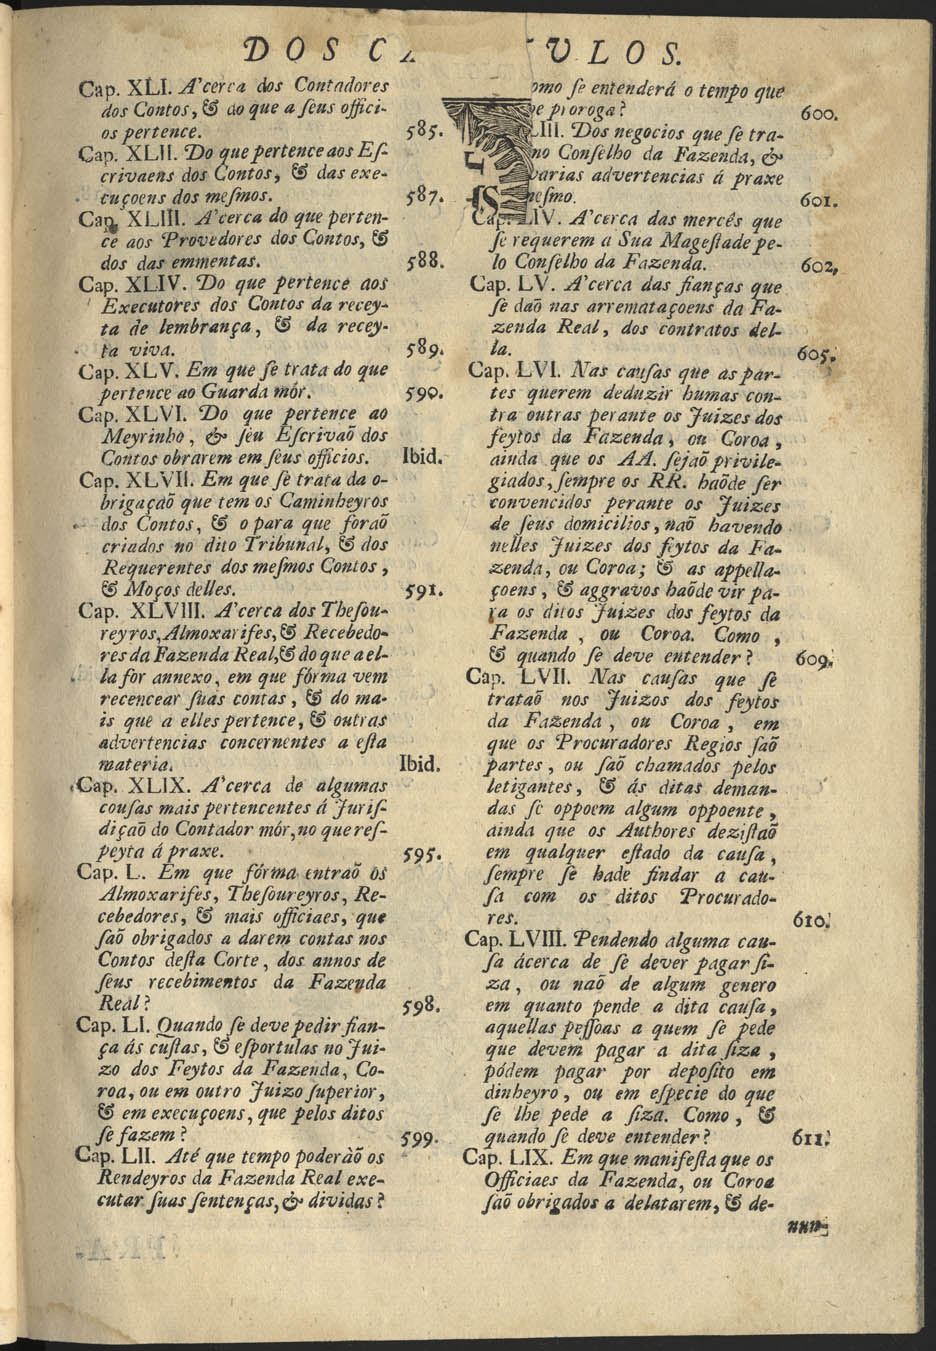 DOS C ULOS.
Cap. XLI. A'cerca dos Contadores
dos Contos, & do que a ſeus offici-
os pertence. 585.
Cap. XLII. Do que pertence aos Eſ-
crivaens dos Contos, & das exe-
cuçoens dos meſmos. 587.
Cap. XLIII. A'cerca do que perten-
ce aos Provedores dos Contos, &
dos das emmentas. 588.
Cap. XLIV. Do que pertence aos
Executores dos Contos da recey-
ta de lembrança, & da recey-
ta viva. 589.
Cap. XLV. Em que ſe trata do que
pertence ao Guarda mór. 590.
Cap. XLVI. Do que pertence ao
Meyrinho, & ſeu Eſcrivaõ dos
Contos obrarem em ſeus officios. Ibid.
Cap. XLVII. Em que ſe trata da o-
brigaçaõ que tem os Caminheyros
dos Contos, & o para que foraõ
criados no dito Tribunal, & dos
Requerentes dos meſmos Contos,
& Moços delles. 591.
Cap. XLVIII. A'cerca dos Theſou-
reyros, Almoxarifes, & Recebedo-
res da Fazenda Real, & do que a el-
la for annexo, em que fórma vem
recencear ſuas contas, & do ma-
is que a elles pertence, & outras
advertencias concernentes a eſta
materia. Ibid.
Cap. XLIX. A'cerca de algumas
couſas mais pertencentes á Juriſ-
diçaõ do Contador mór, no que reſ-
peyta á praxe. 595.
Cap. L. Em que fórma entraõ os
Almoxarifes, Theſoureyros, Re-
cebedores, & mais officiaes, que
ſaõ obrigados a darem contas nos
Contos deſta Corte, dos annos de
ſeus recebimentos da Fazenda
Real? 598.
Cap. LI. Quando ſe deve pedir fian-
ça ás cuſtas, & eſportulas no Jui-
zo dos Feytos da Fazenda, Co-
roa, ou em outro Juizo ſuperior,
& em execuçoens, que pelos ditos
ſe fazem? 599.
Cap. LII. Até que tempo poderàõ os
Rendeyros da Fazenda Real exe-
cutar ſuas ſentenças, & dividas?
omo ſe entenderá o tempo que
e proroga? 600.
LIII. Dos negocios que ſe tra-
no Conſelho da Fazenda, &
varias advertencias á praxe
meſmo. 601.
Cap. LIV. A'cerca das mercês que
ſe requerem a Sua Mageſtade pe-
lo Conſelho da Fazenda. 602.
Cap. LV. A'cerca das fianças que
ſe daõ nas arremataçoens da Fa-
zenda Real, dos contratos del-
la. 605.
Cap. LVI. Nas cauſas que as par-
tes querem deduzir humas con-
tra outras perante os Juizes dos
feytos da Fazenda, ou Coroa,
ainda que os AA. ſejaõ privile-
giados, ſempre os RR. haõde ſer
convencidos perante os Juizes
de ſeus domicilios, naõ havendo
nelles Juizes dos feytos da Fa-
zenda, ou Coroa; & as appella-
çoens, & aggravos haõde vir pa-
ra os ditos Juizes dos feytos da
Fazenda, ou Coroa. Como,
& quando ſe deve entender? 609.
Cap. LVII. Nas cauſas que ſe
trataõ nos Juizos dos feytos
da Fazenda, ou Coroa, em
que os Procuradores Regios ſaõ
partes, ou ſaõ chamados pelos
letigantes, & ás ditas deman-
das ſe oppoem algum oppoente,
ainda que os Authores dezıſtaõ
em qualquer eſtado da cauſa,
ſempre ſe hade findar a cau-
ſa com os ditos Procurado-
res. 610.
Cap. LVIII. Pendendo alguma cau-
ſa ácerca de ſe dever pagar ſi-
za, ou naõ de algum genero
em quanto pende a dita cauſa,
aquellas peſſoas a quem ſe pede
que devem pagar a dita ſiza,
pódem pagar por depoſito em
dinheyro, ou em eſpecie do que
ſe lhe pede a ſiza. Como, &
quando ſe deve entender? 611.
Cap. LIX. Em que manifeſta que os
Officiaes da Fazenda, ou Coroa
ſaõ obrigados a delatarem, & de-
nun-